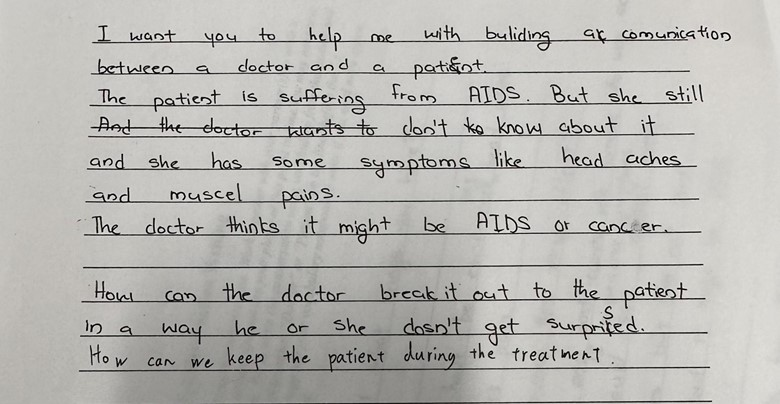 I want you to help me with buliding a comunication
between a doctor and a patient.
The patient is suffering from AIDS. But she still
And the doctor wants to don't to know about it
and she has some symptoms like head aches
and muscel pains.
The doctor thinks it might be AIDS or cancer.
How can the doctor break it out to the patient
in a way he or she dosn't get surprised.
How can we keep the patient during the treatment.